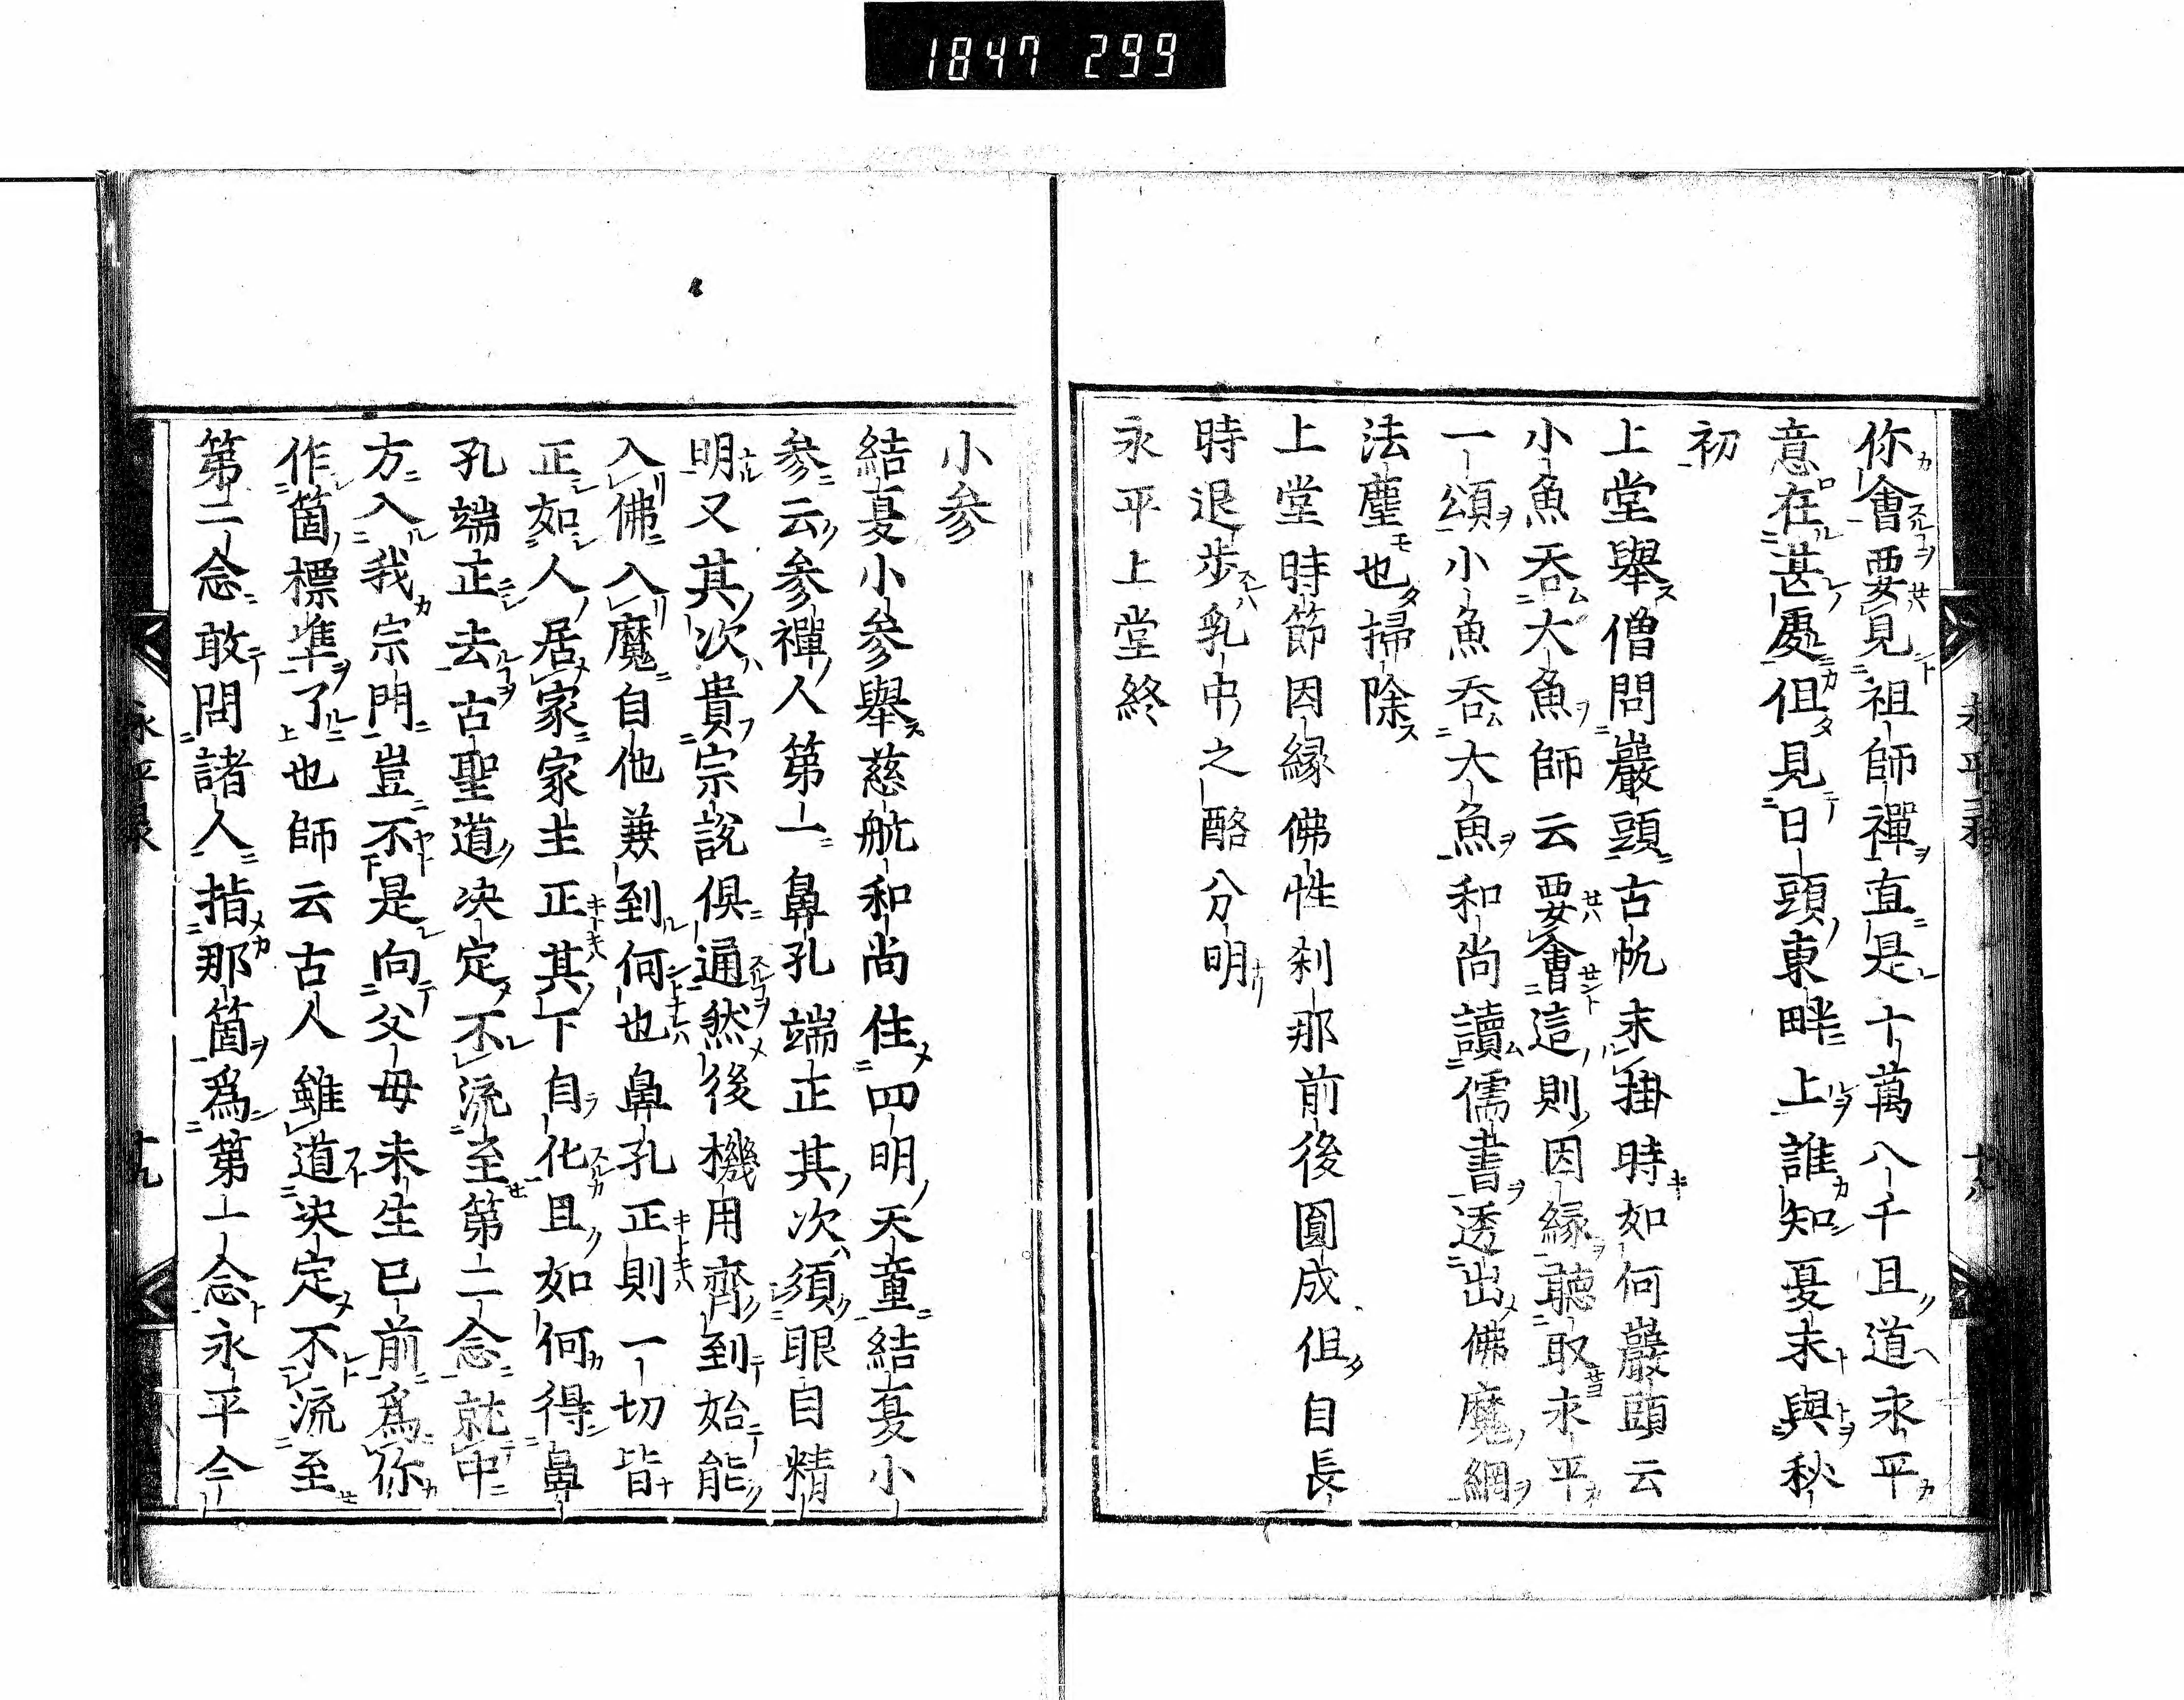 1847 299
你會要見祖師禪直是十萬八千且道永平
意在甚處但見日頭東畔上誰知夏末與秋
初
上堂舉僧問巖頭古帆未掛時如何巖頭云
小魚吞大魚師云要會這則因緣聽取永平
一頌小魚吞大魚和尚讀儒書透出佛魔網
法塵也掃除
上堂時節因緣佛性刹那前後圓成但自長
時退步乳中之酪分明
永平上堂終
永平録
十九
小参
結夏小参舉慈航和尚住四明天童結夏小
参云参禪人第一鼻孔端正其次須眼自精
明又其次貴宗說俱通然後機用齊到始能
入佛入魔自他兼到何也鼻孔正則一切皆
正如人居家家主正其下自化且如何得鼻
孔端正去古聖道決定不流至第二念就中
方入我宗門豈不是向父母未生已前爲你
作箇標準了也師云古人雖道決定不流至
第二念敢問諸人指那箇爲第一念永平今